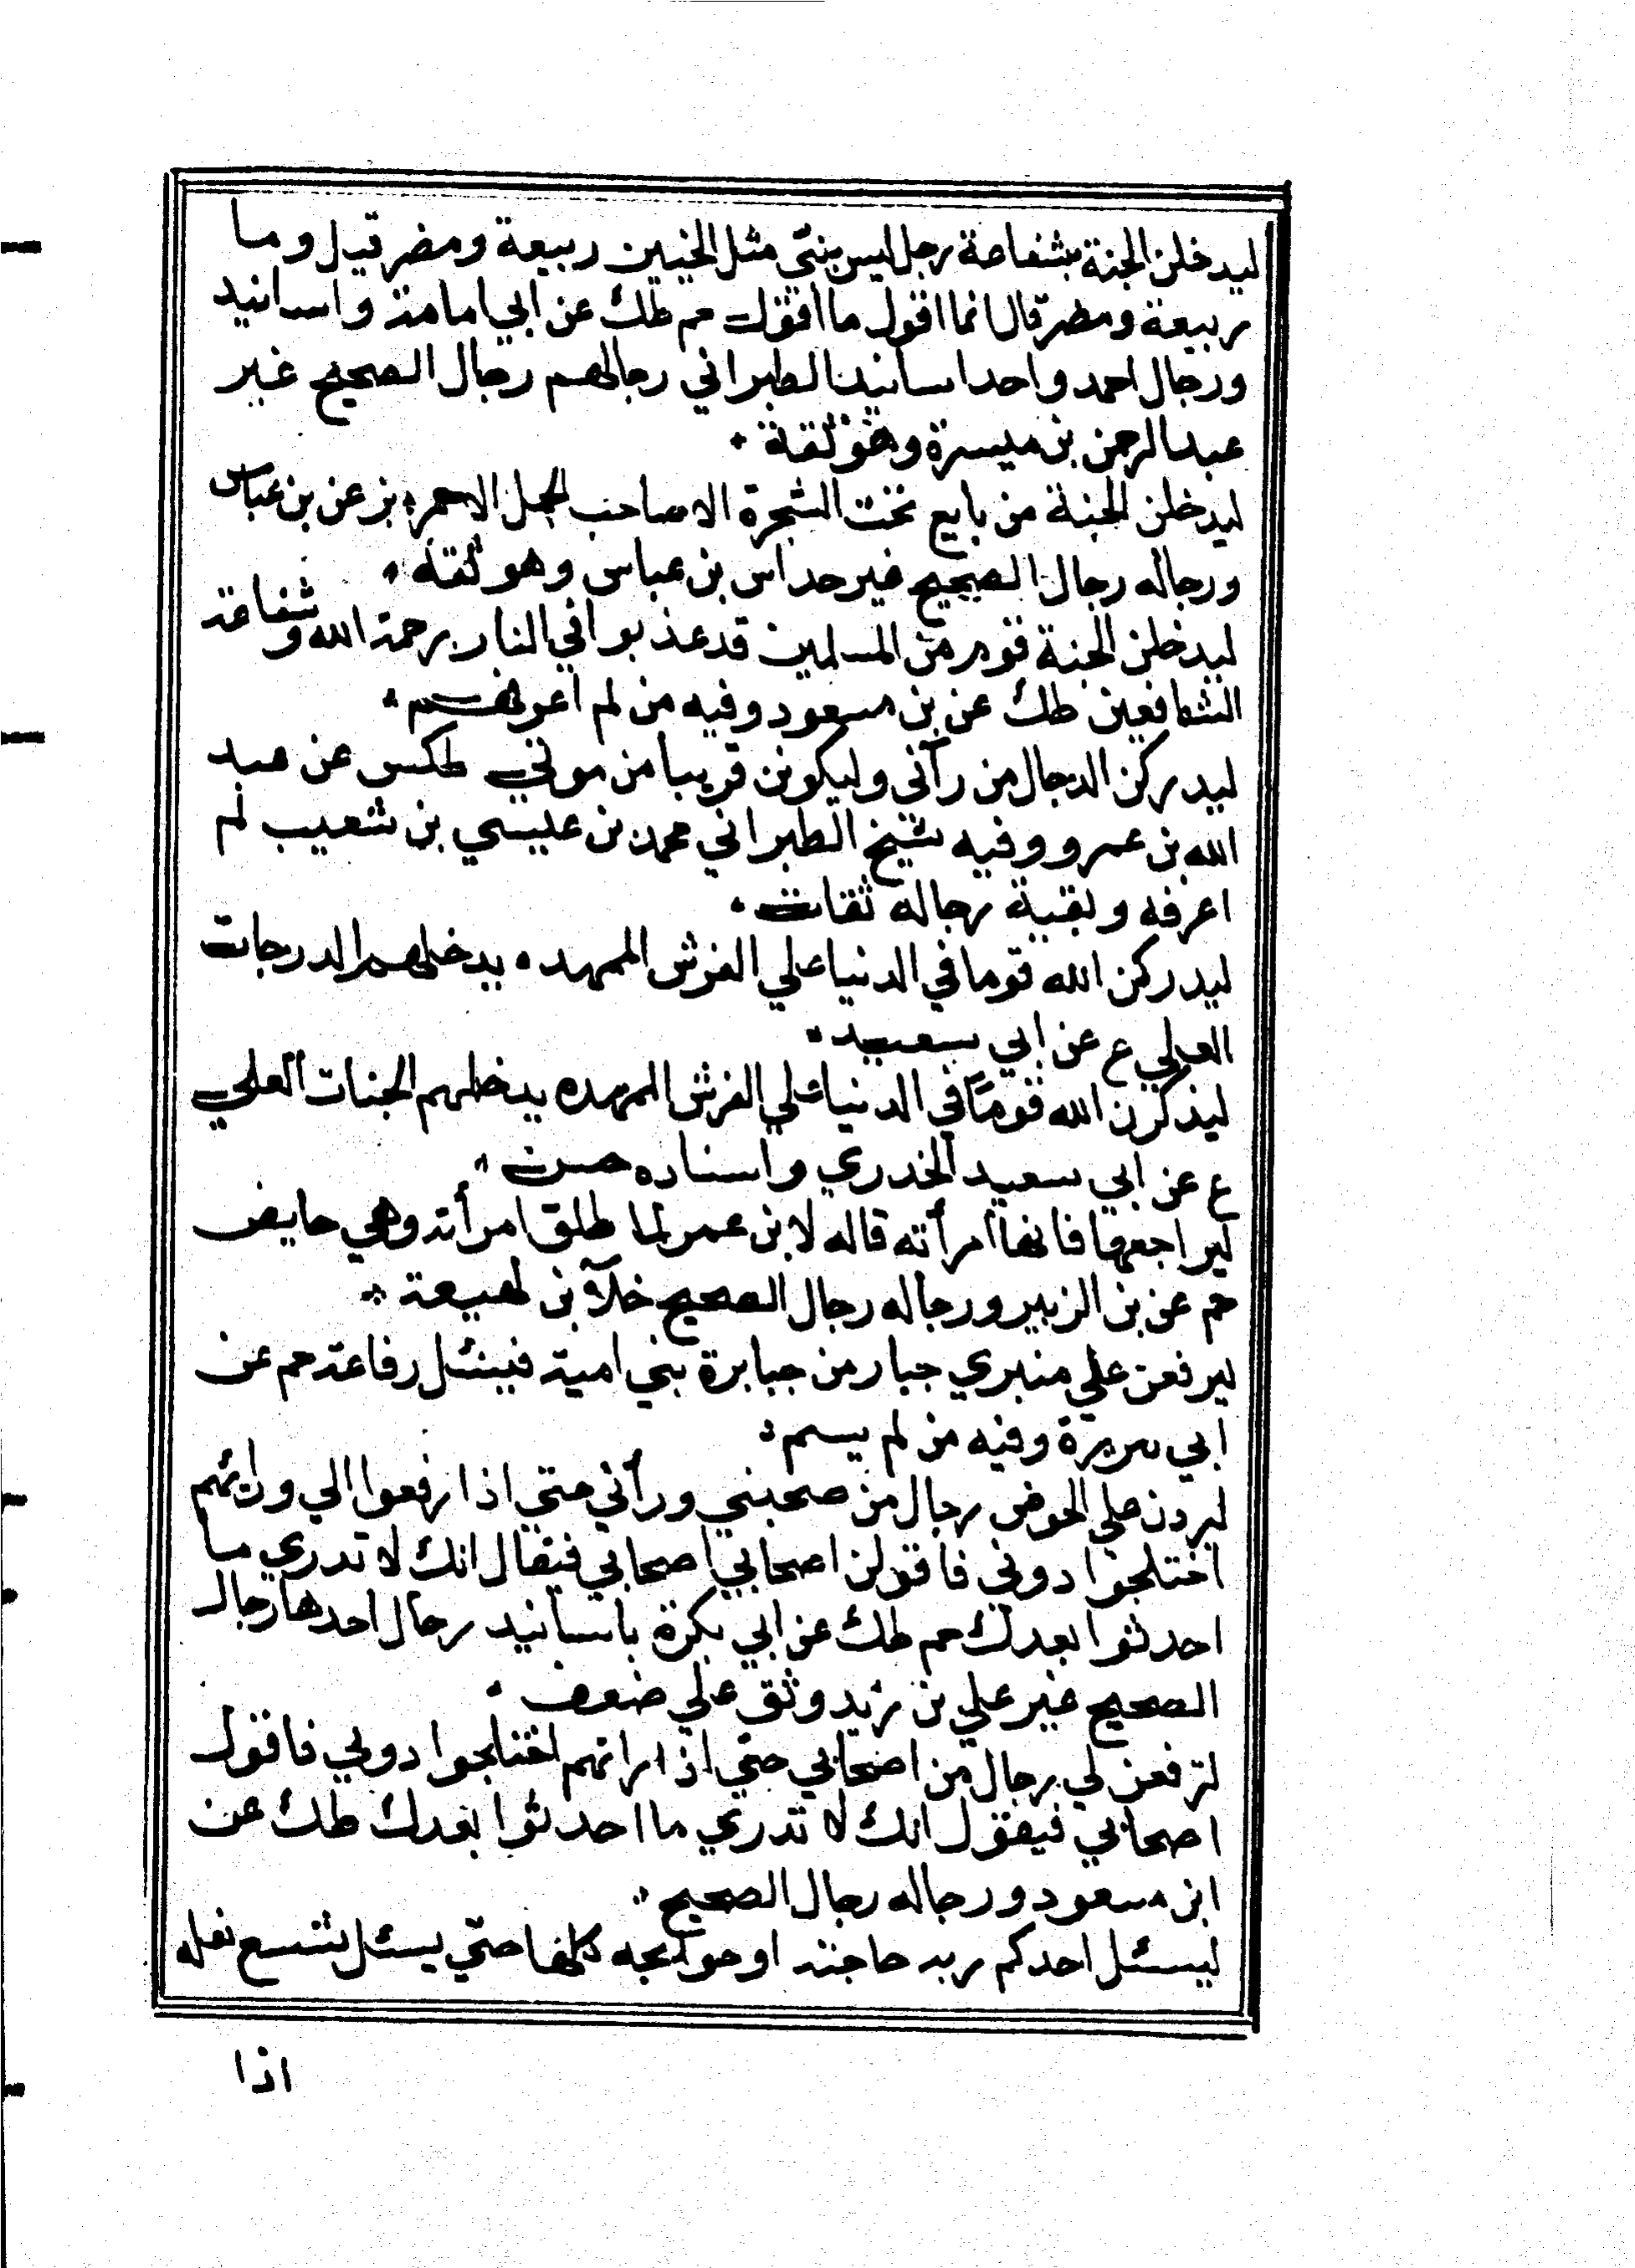 ليدخلن الجنة بشفاعة رجل ليس بنبي مثل الحيين ربيعة ومضر قيل وما
ربيعة ومضر قال انما اقول ما اقول حم طك عن ابي امامة واسانيد
ورجال احمد واحد اسانيد الطبراني رجالهم رجال الصحيح غير
عبد الرحمن بن ميسرة وهو ثقة
ليدخلن الجنة من بايع تحت الشجرة الا صاحب الجمل الاحمر بز عن بن عباس
ورجاله رجال الصحيح غير حداس بن عباس وهو ثقة
ليدخلن الجنة قوم من المسلمين قد عذبوا في النار برحمة الله وشفاعة
الشافعين طك عن بن مسعود وفيه من لم اعرفهم
ليدركن الدجال من رآني وليكونن قريبا من موتي طكس عن عبد
الله بن عمرو وفيه شيخ الطبراني محمد بن عيسي بن شعيب لم
اعرفه وبقية رجاله ثقات
ليدركن الله قوما في الدنيا علي الفرش الممهده يدخلهم الدرجات
العلي ع عن ابي سعيد
ليذكرن الله قوما في الدنيا علي الفرش الممهده يدخلهم الجنات العلي
ع عن ابي سعيد الخدري واسناده حسن
ليراجعها فانها امرأته قاله لابن عمر لما طلق امرأته وهي حايض
حم عن بن الزبير ورجاله رجال الصحيح خلا بن لهيعة
ليرفعن علي منبري جبار من جبابرة بني امية فيسئل رفاعة حم عن
ابي هريرة وفيه من لم يسم
ليردن علي الحوض رجال من صحبني ورآني حتي اذا رفعوا الي ورايتهم
اختلجوا دوني فاقولن اصحابي اصحابي فيقال انك لا تدري ما
احدثوا بعدك حم طك عن ابي بكرة باسانيد رجال احدها رجال
الصحيح غير علي بن زيد وثق علي ضعف
لترفعن لي رجال من اصحابي حتي اذا رأيتهم اختلجوا دوني فاقول
اصحابي فيقول انك لا تدري ما احدثوا بعدك طك عن
ابن مسعود ورجاله رجال الصحيح
ليسئل احدكم ربه حاجته او حوائجه كلها حتي يسئل شسع نعله
اذا